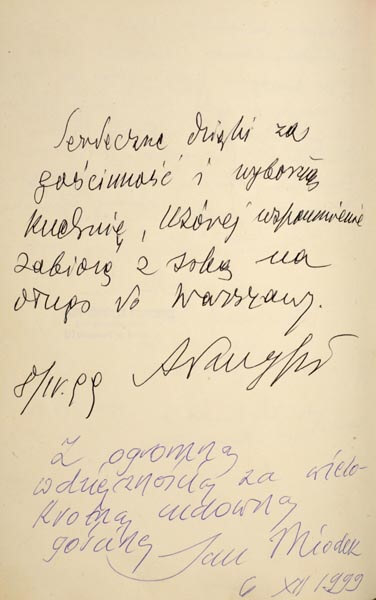 Serdeczne dzięki za
gościnność i wyborną
kuchnię, której wspomnienie
zabiorę z sobą na
długo do Warszawy.
8/IV.99
Z ogromną
wdzięcznością za wielo-
krotną cudowną
gościnę Jan Miodek
6 XII 1999